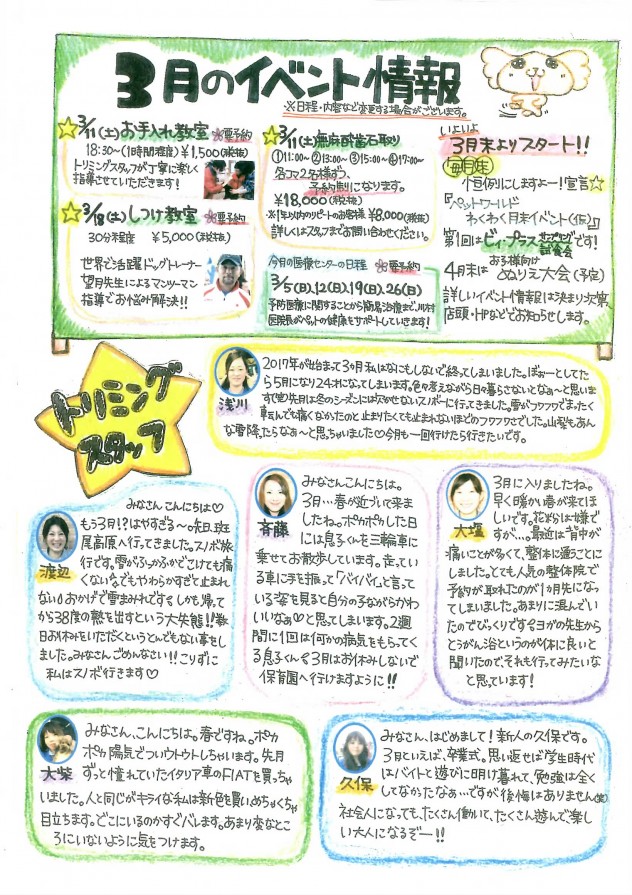 3月のイベント情報
※日程・内容など変更する場合がございます。
3/11(土)お手入れ教室 要予約
18:30~(1時間程度)¥1,500(税抜)
トリミングスタッフが丁寧に楽しく
指導させていただきます!
3/18(土)しつけ教室 要予約
30分程度 ¥5,000(税抜)
世界で活躍ドッグトレーナー
望月先生によるマンツーマン
指導でお悩み解決!!
3/11(土)無麻酔歯石取り
①11:00~②13:00~③15:00~④17:00~
各コマ2名様ずつ
予約制になります。
¥18,000(税抜)
※1年以内のリピートのお客様 ¥8,000(税抜)
詳しくはスタッフまでお問い合わせください。
今月の医療センターの日程 要予約
3/5(日),12(日),19(日),26(日)
予防医療に関することから簡易治療まで、川村
医院長がペットの健康をサポートしていきます!
いよいよ
3月末よりスタート!!
毎月末
恒例にしますよー!宣言☆
『ペットワールド
わくわく月末イベント(仮)』
第1回はビィ・プラスサンプリング試食会です!
お子様向け
4月末は ぬりえ大会(予定)
詳しいイベント情報は決まり次第、
店頭・HPなどでお知らせします。
トリミング
スタッフ
浅川
2017年が始まって3ヶ月私はなにもしないで終ってしまいました。ぼぉーとしてた
ら5月になり24才になってしまいます。色々考えながら日々暮らさないとなぁ~と思いま
す 先月は冬のシーズンには欠かせないスノボーに行ってきました。雪がフワフワでまったく
転んでも痛くなかったのと 止まりたくても止まれないほどのフワフワさでした。山梨もあん
な雪降ったらなぁ~と思っちゃいました♡今月も一回行けたら行きたいです。
渡辺
みなさん こんにちは♡
もう3月!?はやすぎる~先日、斑
尾高原へ行ってきました。スノボ旅
行です。雪がふっかふかでこけても痛
くない でもやわらかすぎて止まれ
ない おかげで雪まみれです しかも帰っ
てから38度の熱を出すという大失態!!数
日お休みをいただくというとんでもない事を
しました。みなさんごめんなさい!!こりずに
私はスノボ行きます♡
斉藤
みなさんこんにちは。
3月…春が近づいて来ま
したね。ポカポカした日
には息子くんを三輪車に
乗せてお散歩しています。走ってい
る車に手を振って「バイバイ」と言って
いる姿を見ると自分の子ながらかわ
いいなぁ♡と思ってしまいます。2週
間に1回は何かの病気をもらってく
る息子くん 3月はお休みしないで
保育園へ行けますように!!
大塩
3月に入りましたね。
早く暖かい春が来てほ
しいです。花粉は嫌で
すが…。最近は背中が
痛いことが多くて、整体に通うことに
しました。とても人気の整体院で
予約が取れたのが1ヵ月先になっ
てしまいました。あまりに混んでい
たのでびっくりです ヨガの先生から
とうがん浴というのが体に良いと
聞いたので、それも行ってみたいな
と思っています!
大柴
みなさん、こんにちは。春ですね、ポカ
ポカ陽気でついウトウトしちゃいます。先月
ずっと憧れていたイタリア車のFIATを買っちゃ
いました。人と同じがキライな私は新色を買い、めちゃくちゃ
目立ちます。どこにいるのかすぐバレます。あまり変なとこ
ろにいないように気をつけます。
久保
みなさん、はじめまして!新人の久保です。
3月といえば、卒業式。思い返せば学生時代
はバイトと遊びに明け暮れて、勉強は全く
してなかったなぁ…ですが後悔はありません(笑)
社会人になっても、たくさん働いて、たくさん遊んで楽し
い大人になるぞー!!